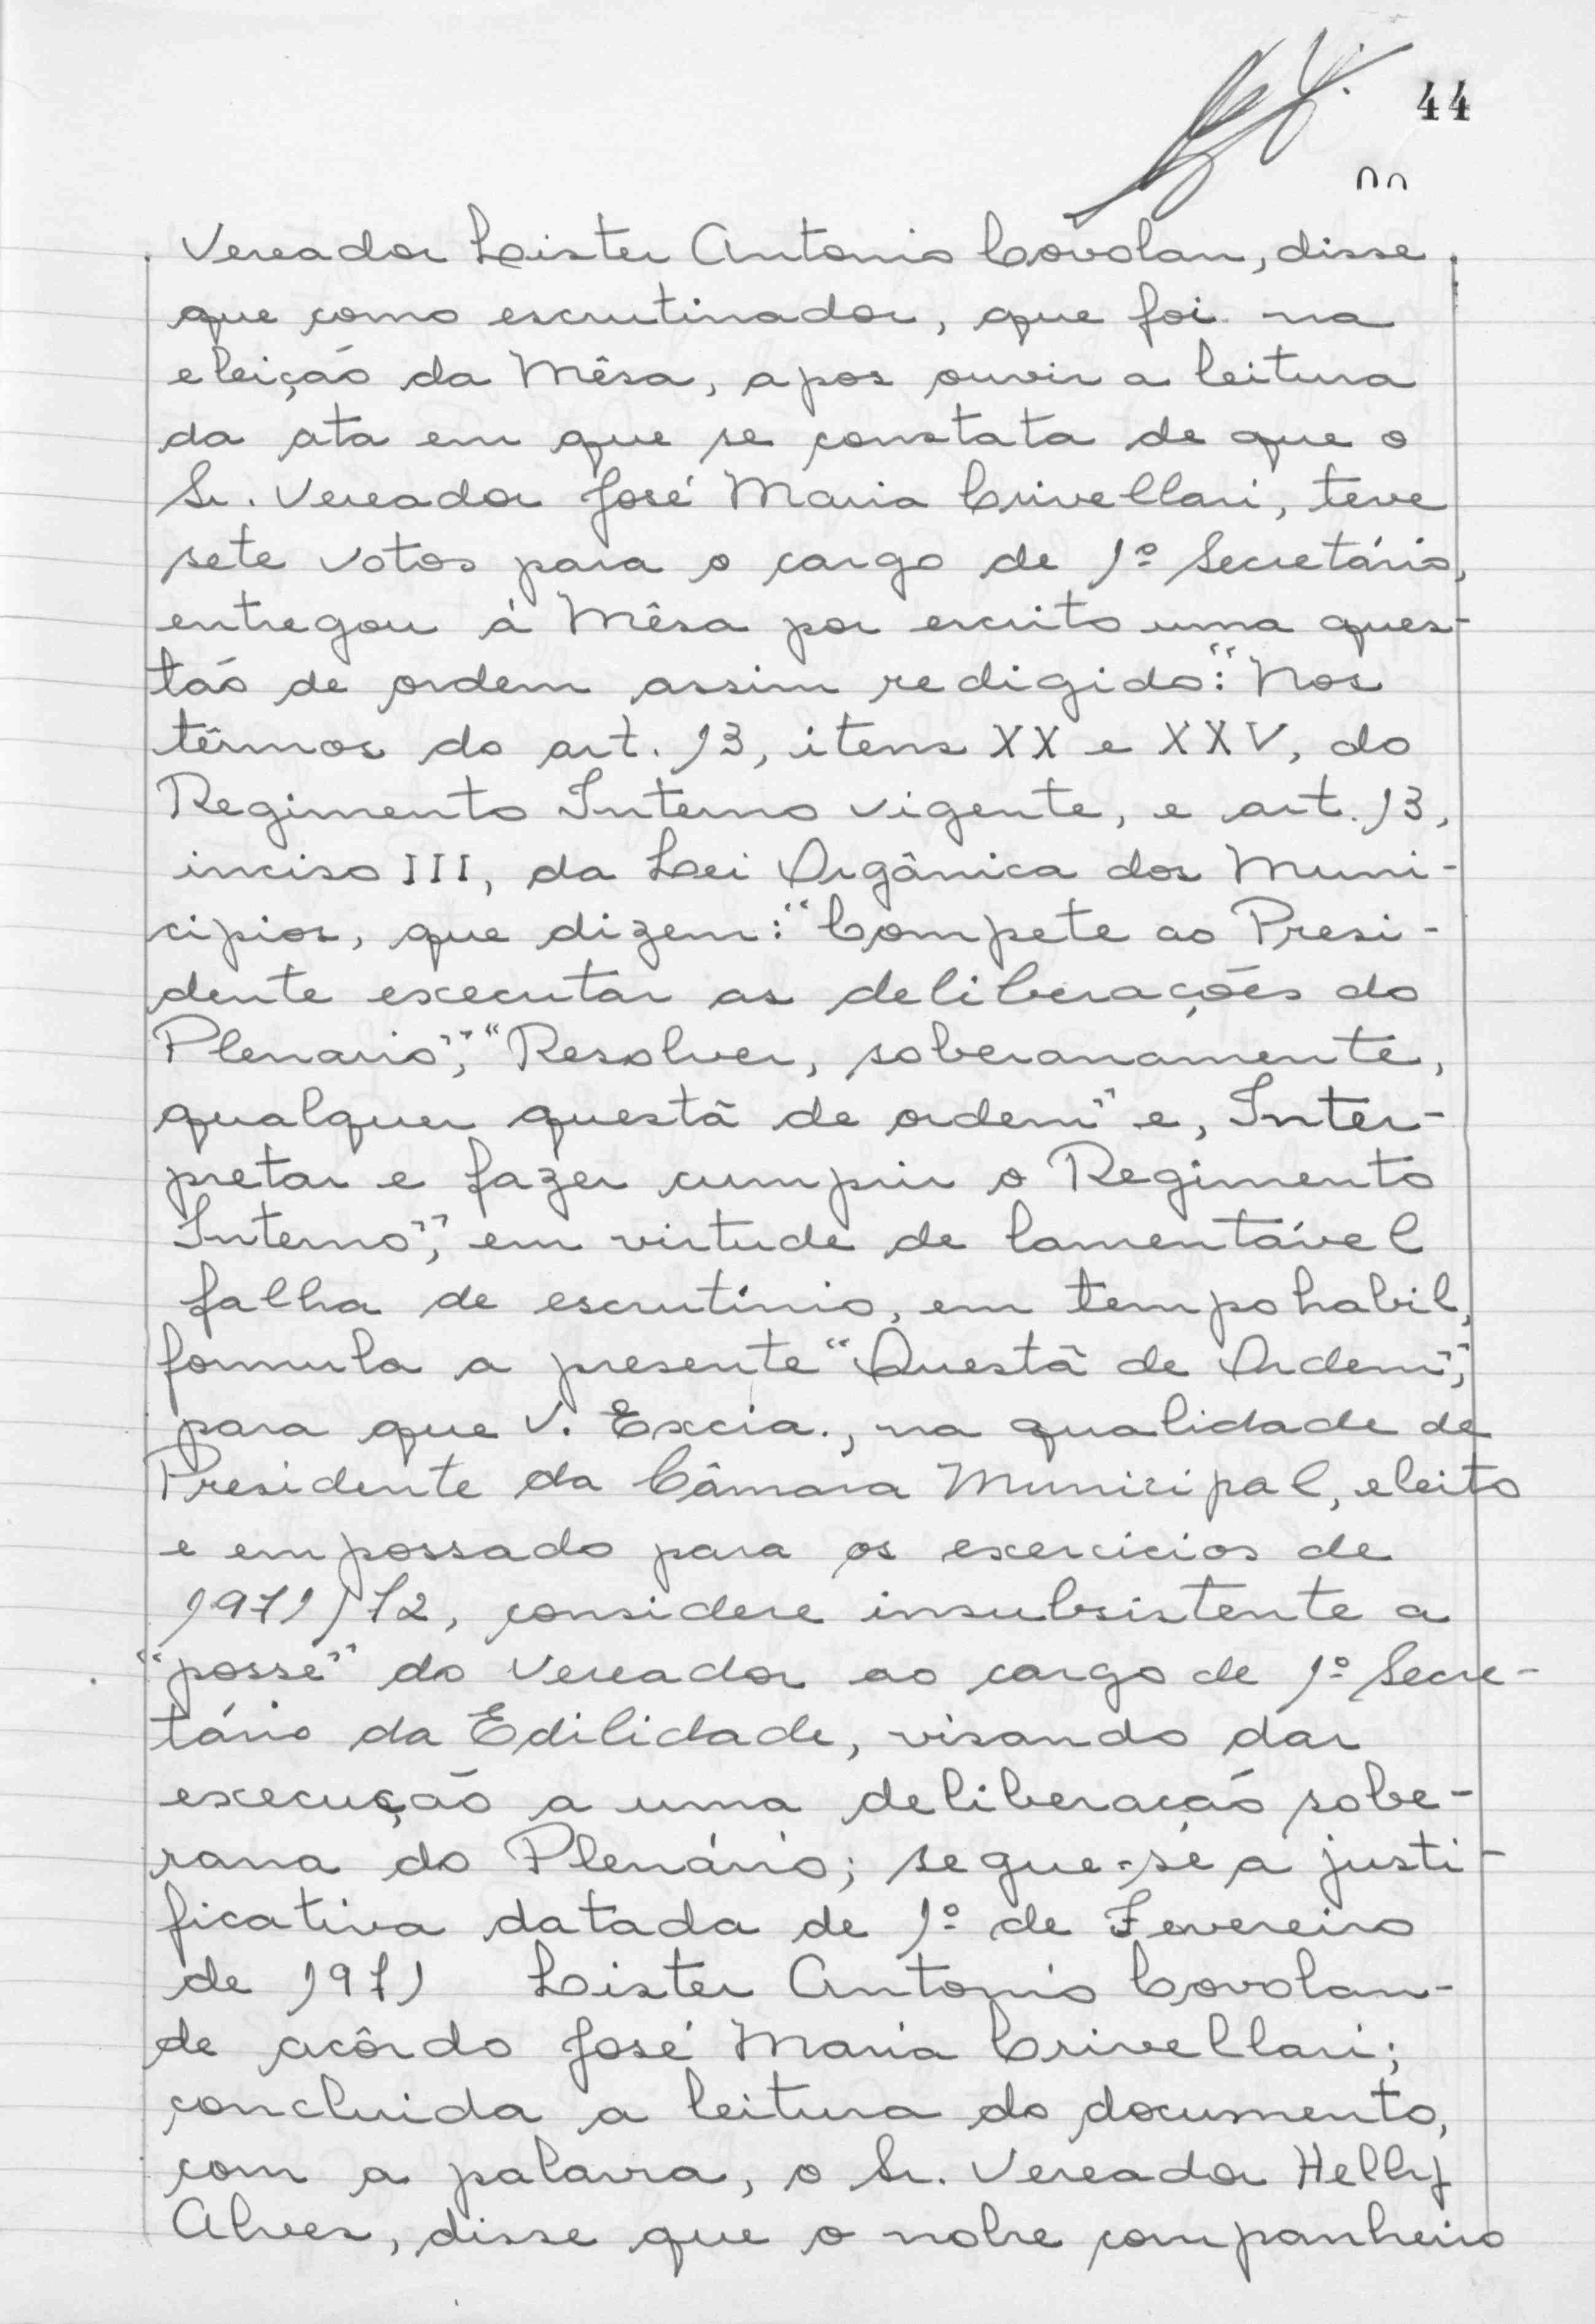 44
Vereador Leister Antonio Covolan, disse
que como escrutinador, que foi na
eleição da Mêsa, apos ouvir a leitura
da ata em que se constata de que o
Sr. Vereador José Maria Crivellari, teve
sete votos para o cargo de 1º Secretário,
entregou á Mêsa por escrito uma ques-
tão de ordem assim redigido: "Nos
têrmos do art. 13, itens XX e XXV, do
Regimento Interno vigente, e art. 13,
inciso III, da Lei Orgânica dos Muni-
cipios, que dizem: "Compete ao Presi-
dente executar as deliberações do
Plenario", "Resolver, soberanamente,
qualquer questã de ordem" e, Inter-
pretar e fazer cumprir o Regimento
Interno", em virtude de lamentável
falha de escrutínio, em tempo habil,
formula a presente "Questã de Ordem",
para que V. Excia., na qualidade de
Presidente da Câmara Municipal, eleito
e empossado para os exercicios de
1971/72, considere insubsistente a
"posse" do Vereador ao cargo de 1º Secre-
tário da Edilidade, visando dar
execução a uma deliberação sobe-
rana do Plenário; segue-se a justi-
ficativa datada de 1º de Fevereiro
de 1971 Lister Antonio Covolan-
de acôrdo José Maria Crivellari;
concluida a leitura do documento,
com a palavra, o Sr. Vereador Helly
Alves, disse que o nobre companheiro